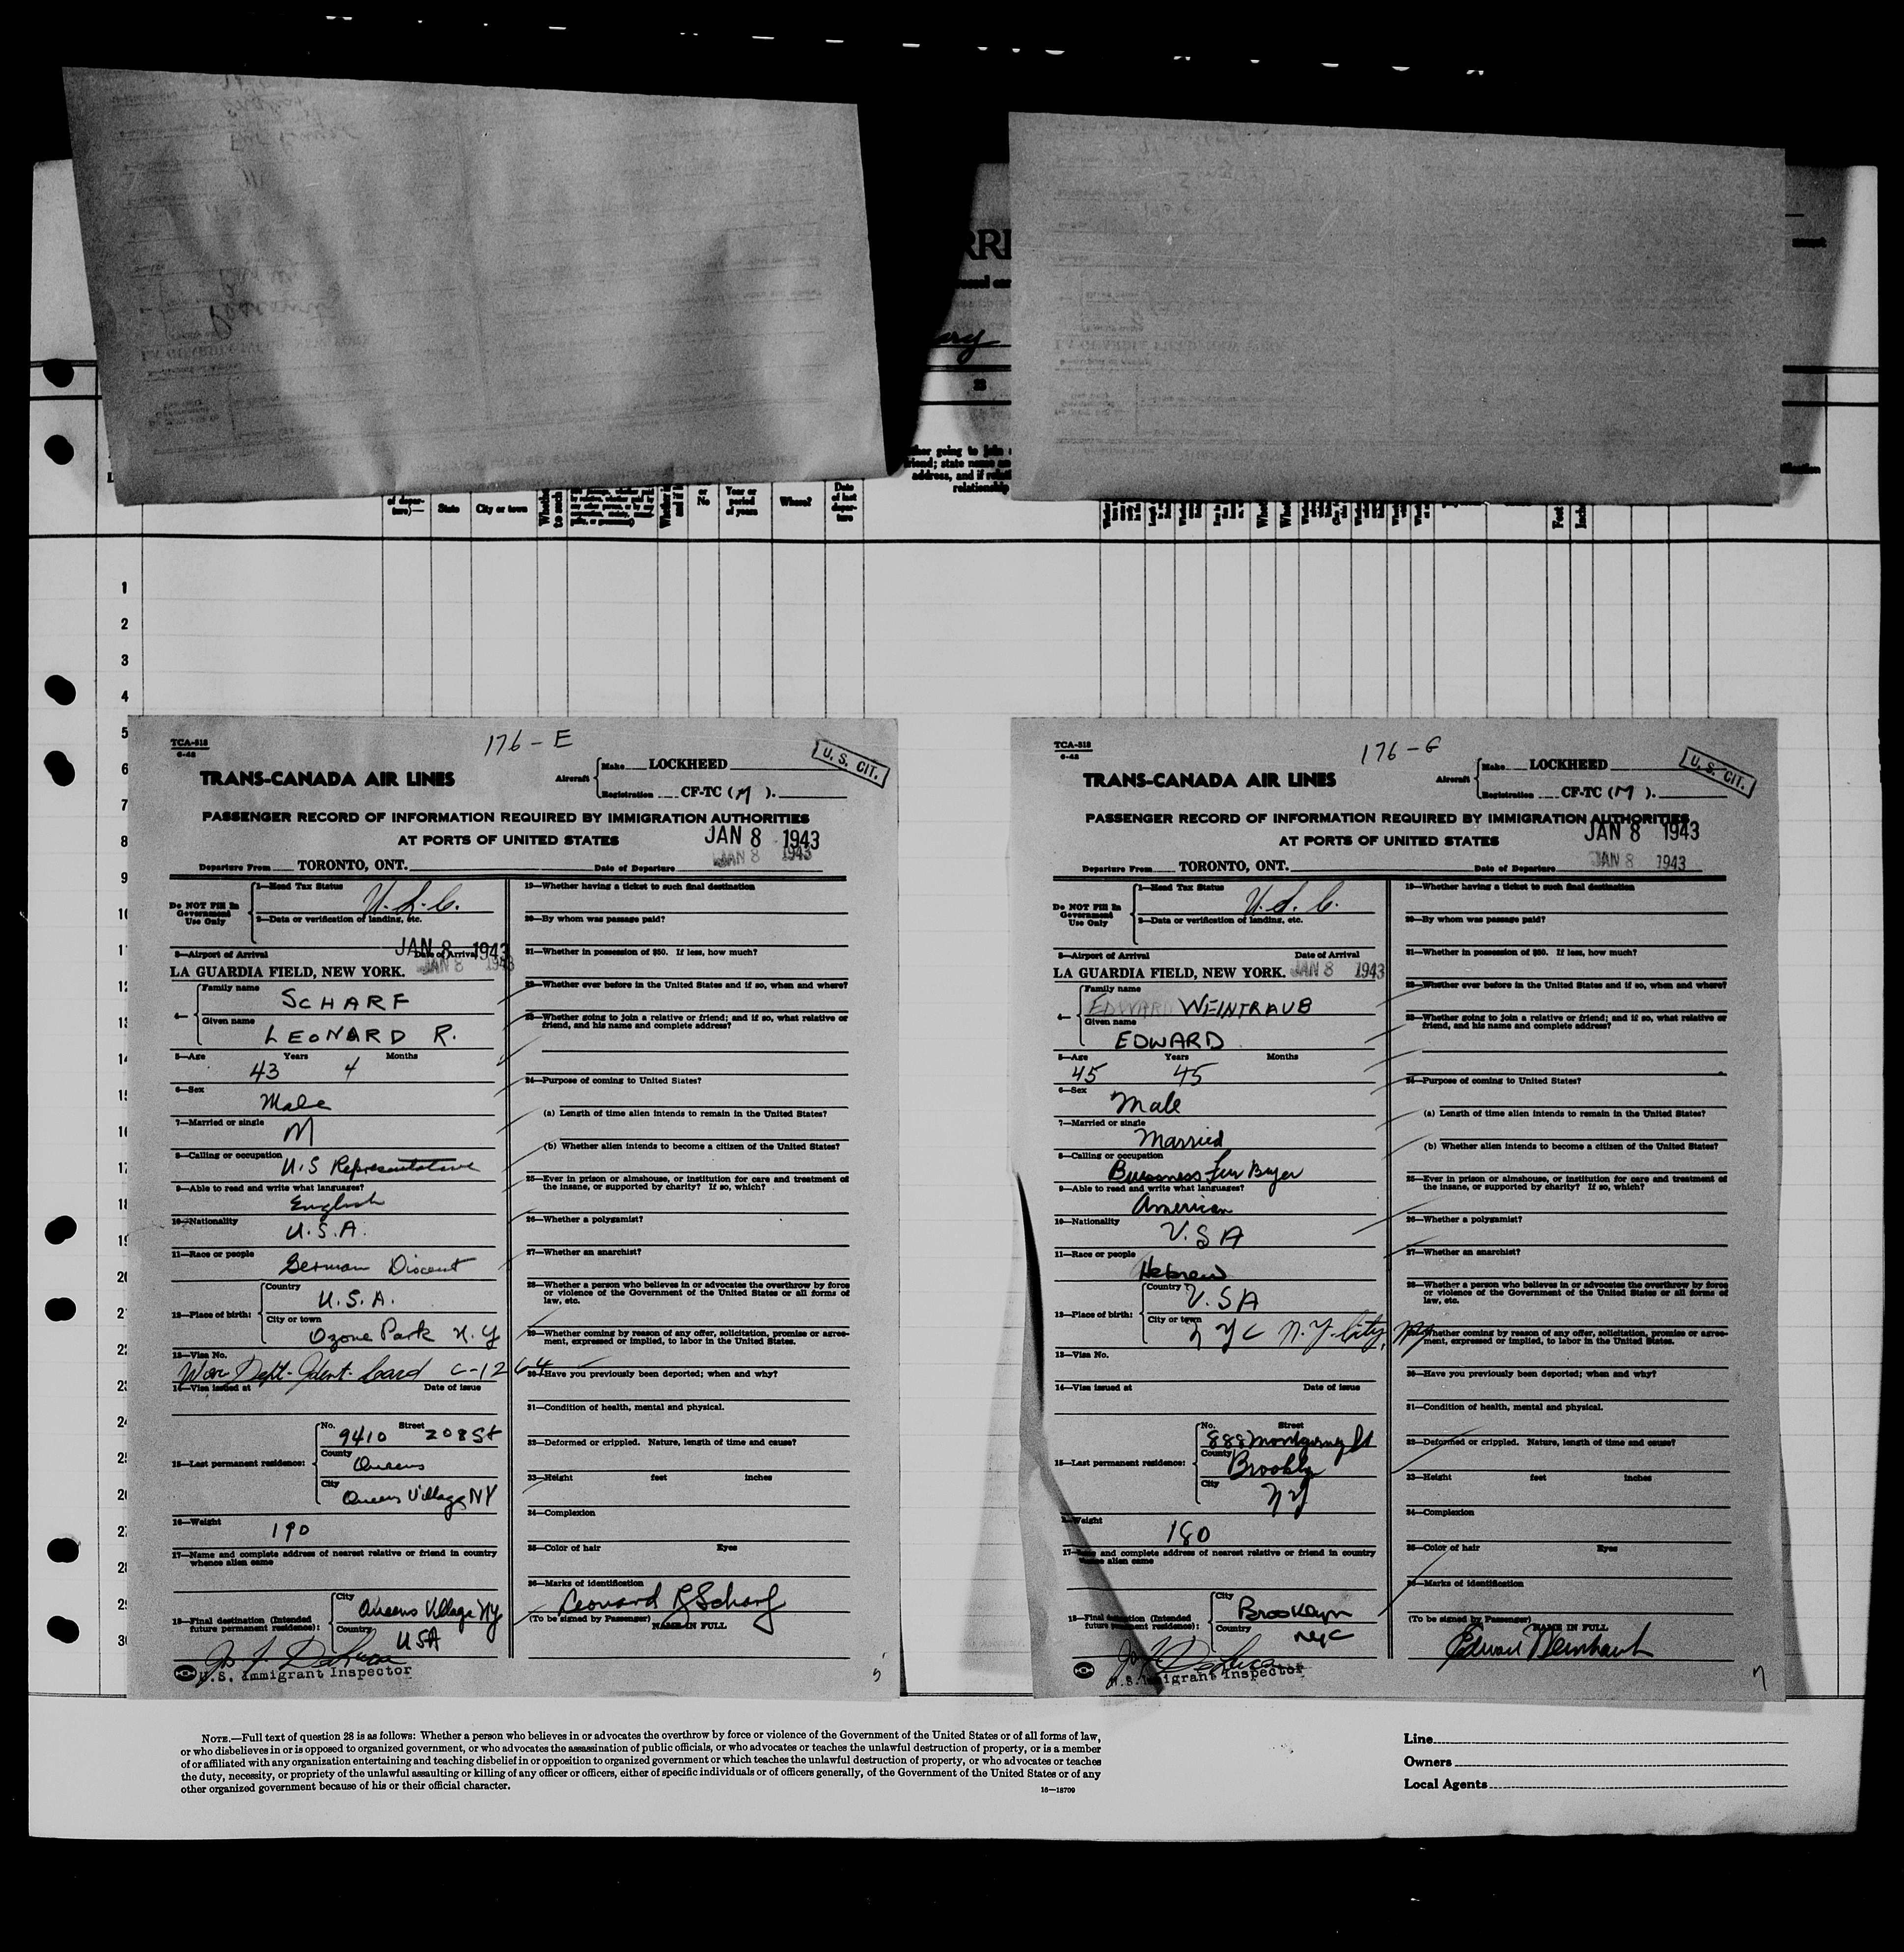 of depar-
ture)—
State
City or town
or
No
Year or
period
of years
Where?
Date
of last
depar-
ture
23
address, and if
relationship
Feet
1
2
3
4
5
6
7
8
9
TCA-518
6-42
176-E
U. S. CIT.
TRANS-CANADA AIR LINES
Aircraft
Make LOCKHEED
Registration CF-TC (M).
PASSENGER RECORD OF INFORMATION REQUIRED BY IMMIGRATION AUTHORITIES
AT PORTS OF UNITED STATES
JAN 8 1943
JAN 8 1943
Departure From TORONTO, ONT. Date of Departure
Do NOT Fill In
Government
Use Only
1—Head Tax Status
U.S.C.
2—Data or verification of landing, etc.
3—Airport of Arrival Date of Arrival
JAN 8 1943
LA GUARDIA FIELD, NEW YORK. JAN 8 1943
4—
Family name
SCHARF
Given name
LEONARD R.
5—Age Years Months
43 4
6—Sex
Male
7—Married or single
M
8—Calling or occupation
U.S Representative
9—Able to read and write what languages?
English
10—Nationality
U.S.A.
11—Race or people
German Discent
12—Place of birth:
Country
U.S.A.
City or town
Ozone Park N.Y
13—Visa No.
War Dept. Ident. Card C-1264
14—Visa issued at Date of issue
15—Last permanent residence:
No. Street
9410 208 St
County
Queens
City
Queens Village NY
16—Weight
190
17—Name and complete address of nearest relative or friend in country
whence alien came
18—Final destination (Intended
future permanent residence):
City
Queens Village NY
Country
USA
U.S. Immigrant Inspector
19—Whether having a ticket to such final destination
20—By whom was passage paid?
21—Whether in possession of $50. If less, how much?
22—Whether ever before in the United States and if so, when and where?
23—Whether going to join a relative or friend; and if so, what relative or
friend, and his name and complete address?
24—Purpose of coming to United States?
(a) Length of time alien intends to remain in the United States?
(b) Whether alien intends to become a citizen of the United States?
25—Ever in prison or almshouse, or institution for care and treatment of
the insane, or supported by charity? If so, which?
26—Whether a polygamist?
27—Whether an anarchist?
28—Whether a person who believes in or advocates the overthrow by force
or violence of the Government of the United States or all forms of
law, etc.
29—Whether coming by reason of any offer, solicitation, promise or agree-
ment, expressed or implied, to labor in the United States.
30—Have you previously been deported; when and why?
31—Condition of health, mental and physical.
32—Deformed or crippled. Nature, length of time and cause?
33—Height feet inches
34—Complexion
35—Color of hair Eyes
36—Marks of identification
Leonard R Scharf
(To be signed by Passenger)
NAME IN FULL
5
TCA-518
6-42
176-G
U. S. CIT.
TRANS-CANADA AIR LINES
Aircraft
Make LOCKHEED
Registration CF-TC (M).
PASSENGER RECORD OF INFORMATION REQUIRED BY IMMIGRATION AUTHORITIES
AT PORTS OF UNITED STATES
JAN 8 1943
JAN 8 1943
Departure From TORONTO, ONT. Date of Departure
Do NOT Fill In
Government
Use Only
1—Head Tax Status
U.S.C.
2—Data or verification of landing, etc.
3—Airport of Arrival Date of Arrival
LA GUARDIA FIELD, NEW YORK. JAN 8 1943
4—
Family name
EDWARD WEINTRAUB
Given name
EDWARD
5—Age Years Months
45 45
6—Sex
Male
7—Married or single
Married
8—Calling or occupation
Bussness Fur Buyer
9—Able to read and write what languages?
American
10—Nationality
U.S A
11—Race or people
Hebrew
12—Place of birth:
Country
U.S A
City or town
N Y C N.Y. City, NY
13—Visa No.
14—Visa issued at Date of issue
15—Last permanent residence:
No. Street
888 Montgomery St
County
Brooklyn
City
NY
Weight
180
17— and complete address of nearest relative or friend in country
alien came
18—Final destination (Intended
future permanent residence):
City
Brooklyn
Country
NYC
U.S. Immigrant Inspector
19—Whether having a ticket to such final destination
20—By whom was passage paid?
21—Whether in possession of $50. If less, how much?
22—Whether ever before in the United States and if so, when and where?
23—Whether going to join a relative or friend; and if so, what relative or
friend, and his name and complete address?
24—Purpose of coming to United States?
(a) Length of time alien intends to remain in the United States?
(b) Whether alien intends to become a citizen of the United States?
25—Ever in prison or almshouse, or institution for care and treatment of
the insane, or supported by charity? If so, which?
26—Whether a polygamist?
27—Whether an anarchist?
28—Whether a person who believes in or advocates the overthrow by force
or violence of the Government of the United States or all forms of
law, etc.
Whether coming by reason of any offer, solicitation, promise or agree-
ment, expressed or implied, to labor in the United States.
30—Have you previously been deported; when and why?
31—Condition of health, mental and physical.
32—Deformed or crippled. Nature, length of time and cause?
33—Height feet inches
34—Complexion
35—Color of hair Eyes
36—Marks of identification
(To be signed by Passenger)
NAME IN FULL
Edward Weintraub
7
NOTE.—Full text of question 28 is as follows: Whether a person who believes in or advocates the overthrow by force or violence of the Government of the United States or of all forms of law,
or who disbelieves in or is opposed to organized government, or who advocates the assassination of public officials, or who advocates or teaches the unlawful destruction of property, or is a member
of or affiliated with any organization entertaining and teaching disbelief in or opposition to organized government or which teaches the unlawful destruction of property, or who advocates or teaches
the duty, necessity, or propriety of the unlawful assaulting or killing of any officer or officers, either of specific individuals or of officers generally, of the Government of the United States or of any
other organized government because of his or their official character.
16—18709
Line
Owners
Local Agents